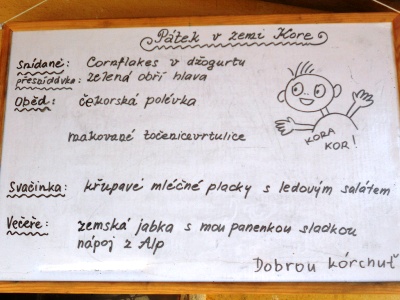 Pátek v zemi Kore
Snídaně: Cornflakes v džogurtu
přesnídávka: zelená obří hlava
Oběd: čekorská polévka
makované točenicevrtulice
KORA
KOR!
Svačinka: křupavé mléčné placky s ledovým salátem
Večeře: zemská jabka s mou panenkou sladkou
nápoj z Alp
Dobrou kórchuť